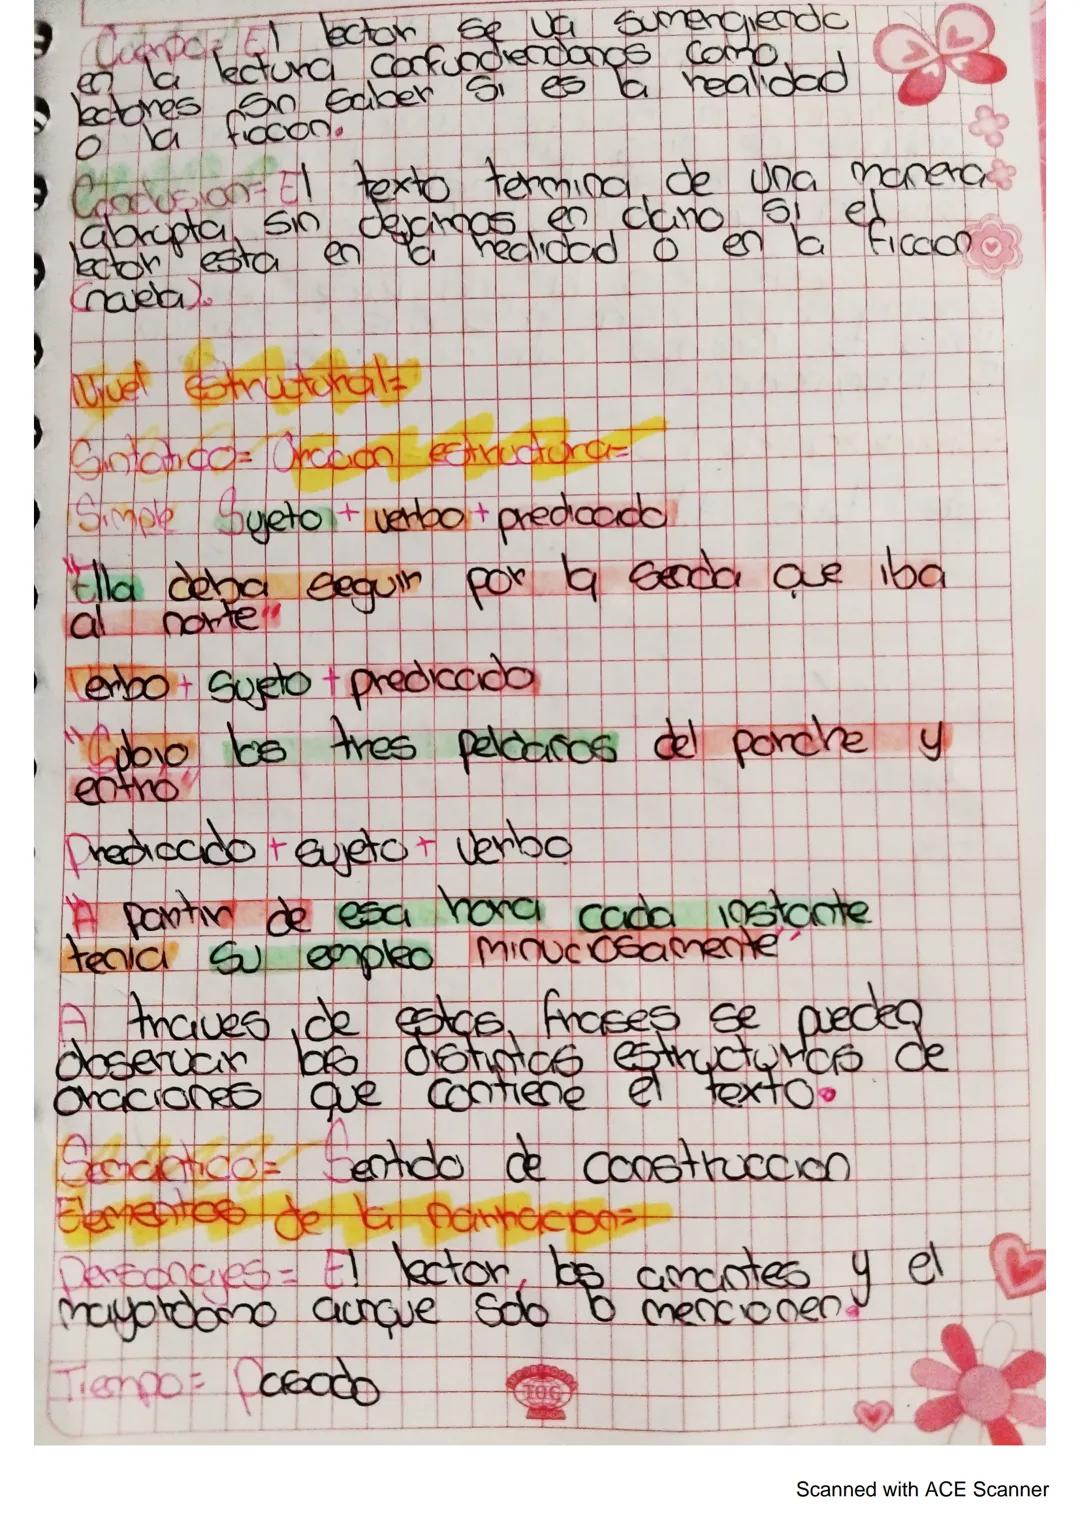 Cuerpo= El lector se va sumengiendo
en la lectura confundiendonos como
lectores sin saber si es la realidad
o la ficcon.
Conclusion= El texto termina de una manera
abrupta sin decirnos en claro si el
lector esta en la realidad o en la ficcion
(novela).
Nivel estructural=
Sintatico= Oracion estructura=
Simple Sujeto + verbo + predicado
"Ella debia seguir por la senda que iba
al norte"
Verbo + Sujeto + predicado
"Subio los tres peldaños del porche y
entro"
Predicado + sujeto + verbo
"A partir de esa hora cada instante
tenia su empleo minuciosamente"
A traves de estas frases se pueden
observar las distintas estructuras de
oraciones que contiene el texto.
Semantico= Sentido de construccion
Elementos de la narracion=
Personajes= El lector, los amantes y el
mayordomo aunque solo lo mencionen.
Tiempo= Pasado
Scanned with ACE Scanner